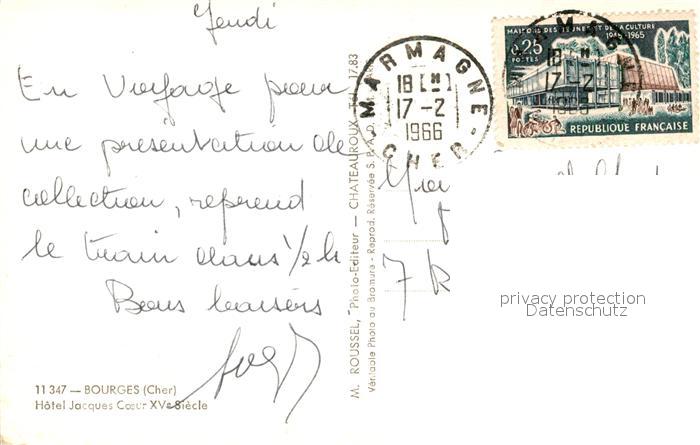 Jeudi
En Voyage pour
une présentation de
collection, reprend
le train dans 1/2 h
Bons baisers
11 347 — BOURGES (Cher)
Hôtel Jacques Cœur XVe Siècle
M. ROUSSEL, Photo-Editeur — CHATEAUROUX - Tél. 17.83
Véritable Photo au Bromure - Reprod. Réservée
MARMAGNE
18 H
17-2
1966
CHER
MAISONS DES JEUNES ET DE LA CULTURE
1945-1965
0,25
POSTES
18 H
17-2
1966
REPUBLIQUE FRANÇAISE
privacy protection
Datenschutz